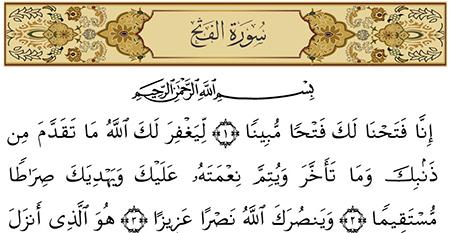 سُورَةُ الفَتْحِ
بِسْمِ اللَّهِ الرَّحْمَٰنِ الرَّحِيمِ
إِنَّا فَتَحْنَا لَكَ فَتْحًا مُّبِينًا ﴿١﴾ لِّيَغْفِرَ لَكَ اللَّهُ مَا تَقَدَّمَ مِن
ذَنۢبِكَ وَمَا تَأَخَّرَ وَيُتِمَّ نِعْمَتَهُۥ عَلَيْكَ وَيَهْدِيَكَ صِرَٰطًا
مُّسْتَقِيمًا ﴿٢﴾ وَيَنصُرَكَ اللَّهُ نَصْرًا عَزِيزًا ﴿٣﴾ هُوَ الَّذِى أَنزَلَ